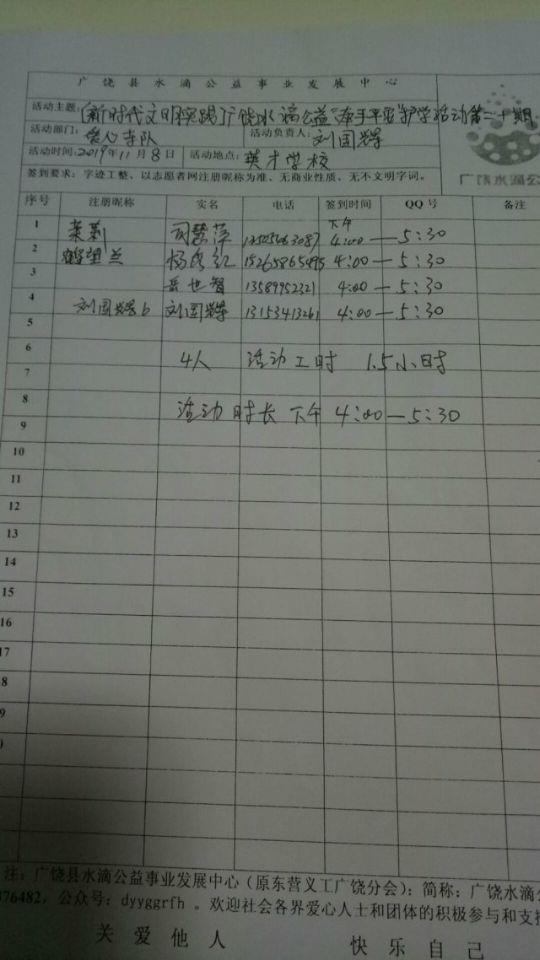 广饶县水滴公益事业发展中心
活动主题：〔新时代文明实践〕广饶水滴公益"牵手平安"护学活动第二十期
活动部门：爱心车队 活动负责人：刘国辉
活动时间：2019年11月8日 活动地点：英才学校
签到要求：字迹工整、以志愿者网注册昵称为准、无商业性质、无不文明字词。
广饶水滴公
序号 注册昵称 实名 电话 签到时间 QQ号 备注
下午
1 茉莉 4:00—5:30
2 鹤望兰 4:00—5:30
3 岳世智 13589952321 4:00—5:30
4 刘国辉b 刘国辉 13153413261 4:00—5:30
5
6 4人 活动工时 1.5小时
7
8 活动时长 下午 4:00—5:30
9
10
11
12
13
14
15
16
17
8
9
注：广饶县水滴公益事业发展中心（原东营义工广饶分会）：简称：广饶水滴公
76482，公众号：dyyggrfh 。欢迎社会各界爱心人士和团体的积极参与和支持
关爱他人 快乐自己